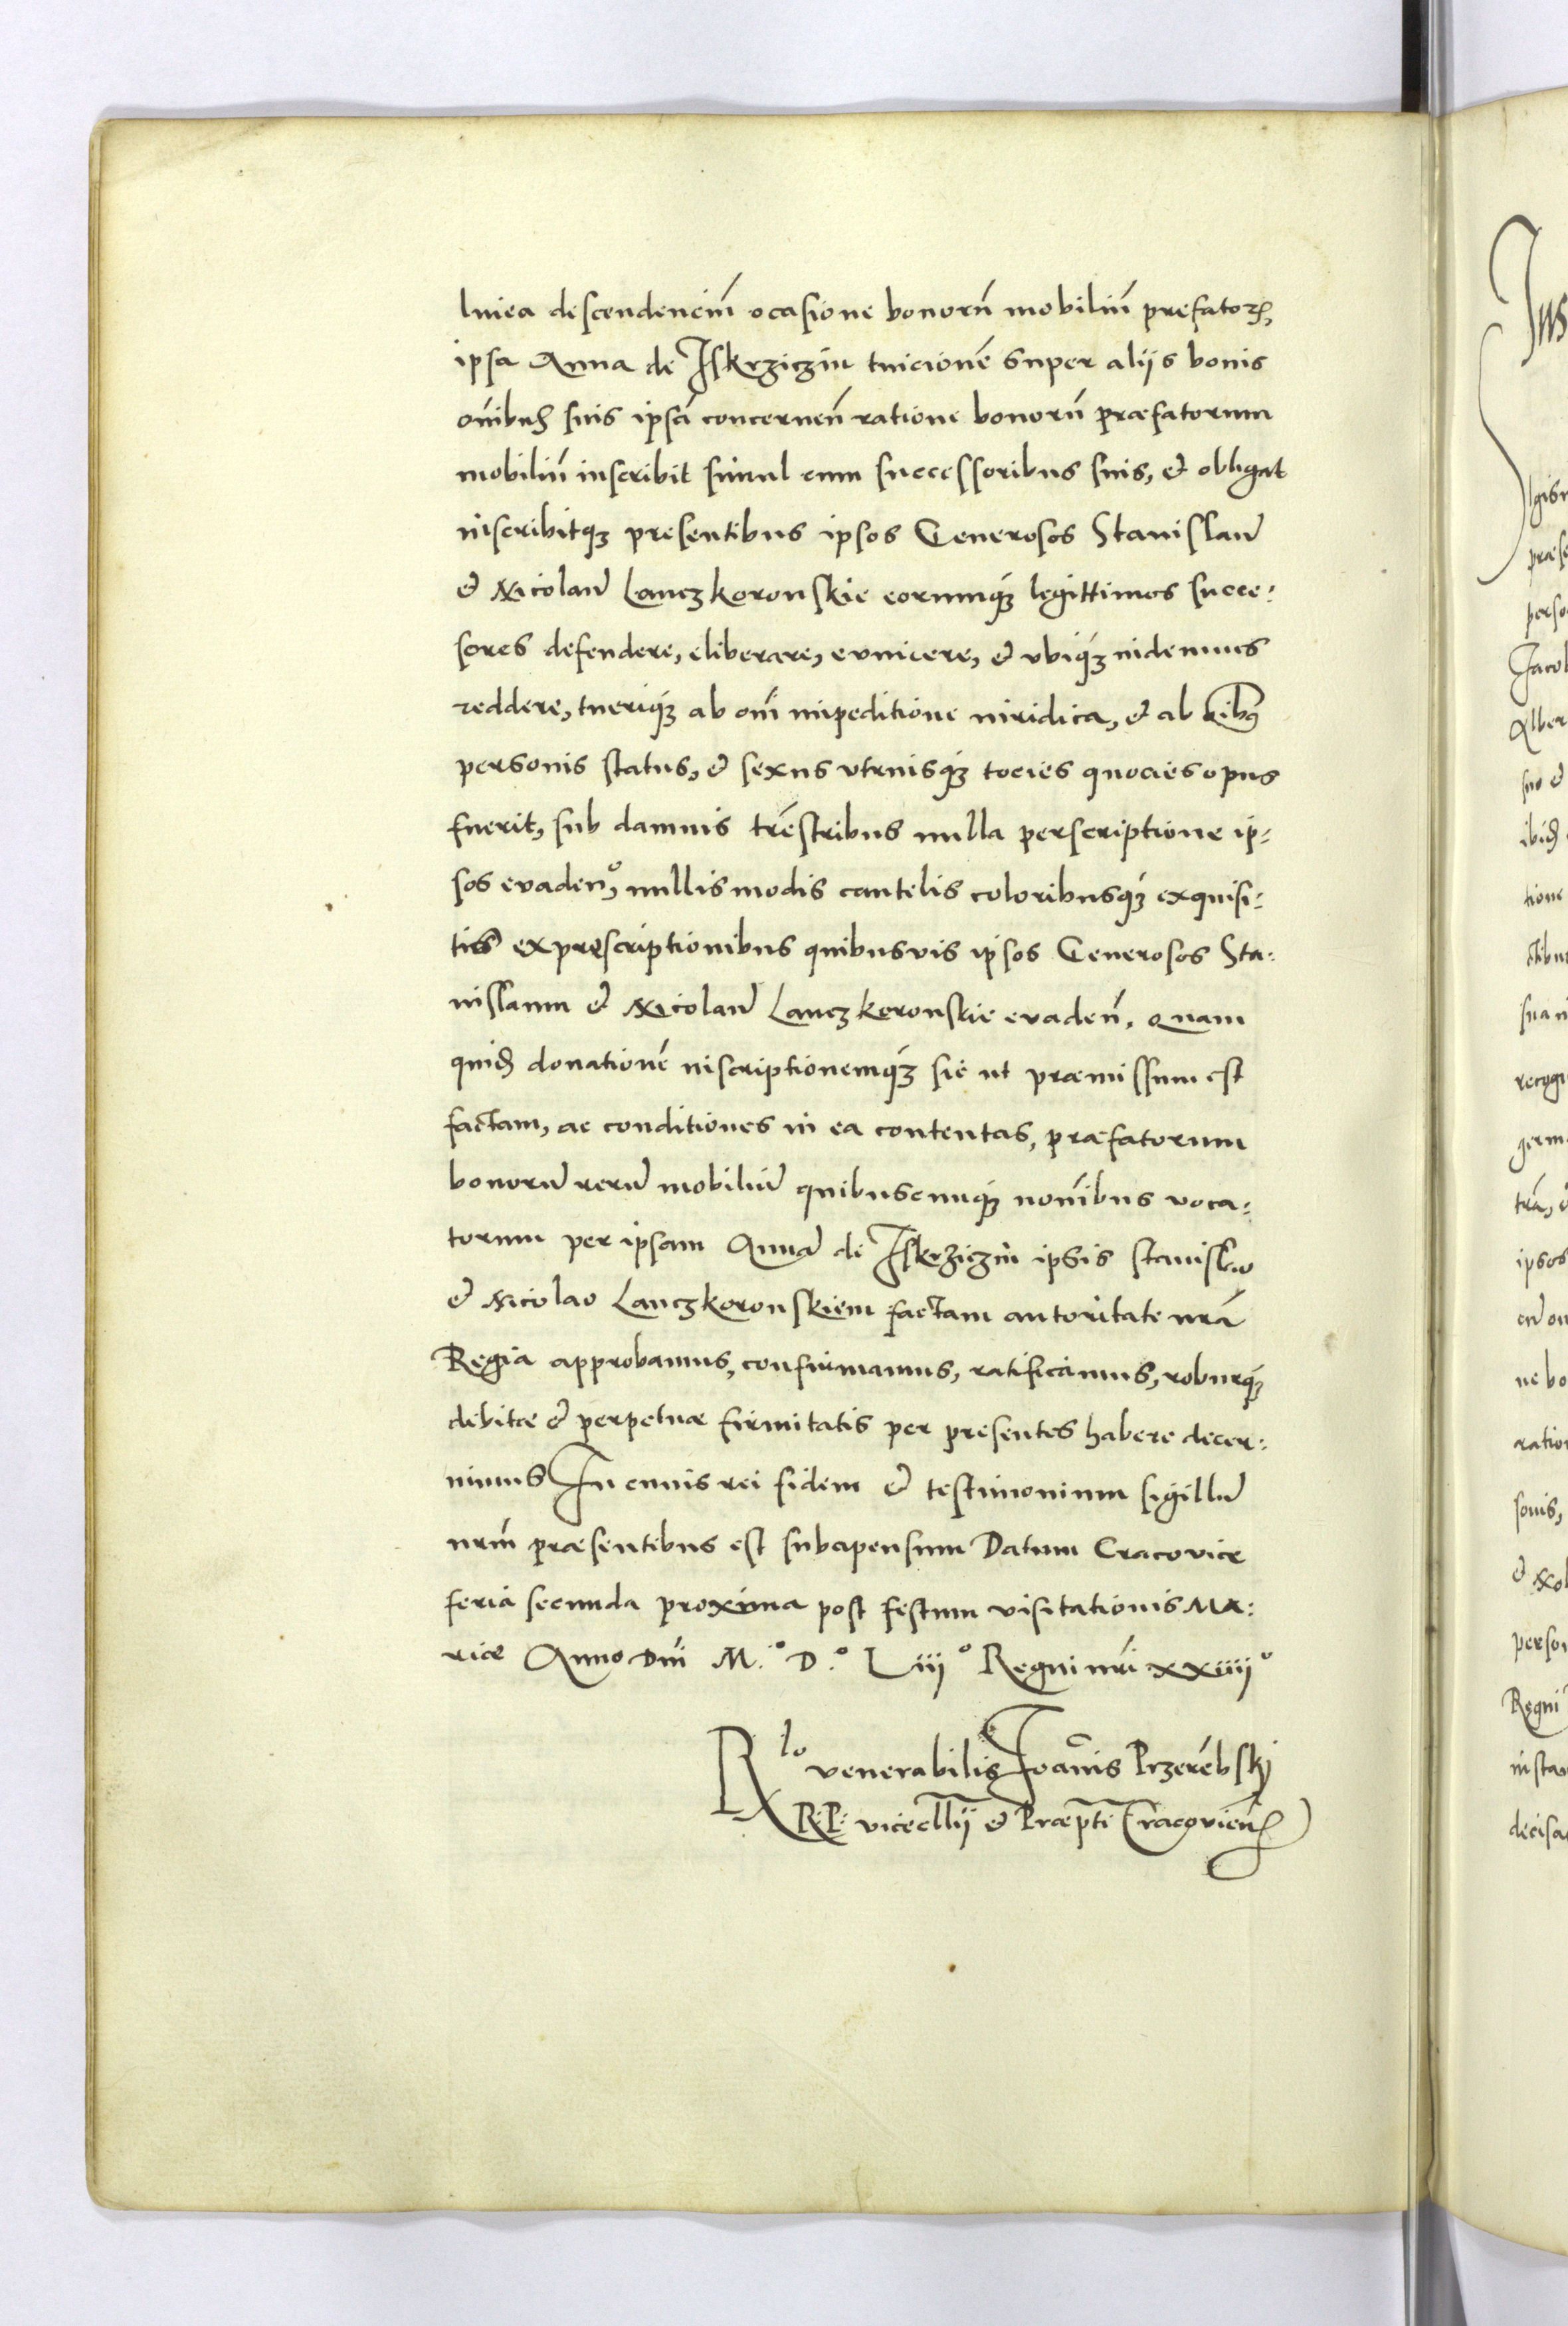 linea descendenciũ ocasione bonorũ mobiliũ prefatorꝝ,
ipsa Anna de Iskrziczin tuicionẽ super aliis bonis
oĩbus suis ipsã concernen̄ ratione bonorũ præfatorum
mobiliũ inscribit simul cum successoribus suis, et obligat
inscribitqꝫ presentibus ipsos Generosos Stanislaũ
et Nicolaũ Lanczkoronskie eorumqꝫ legittimos succe:
sores defendere, eliberare, evincere, et ubiqꝫ indemnes
reddere, tueriqꝫ ab om̃i impeditione iuridica, et ab
personis status, et sexus utriusqꝫ tocies quocies opus
fuerit, sub damnis tr̃estribus nulla perscriptione ip:
sos evadenº, nullis modis cautelis coloribusqꝫ exquisi:
tis ex prescriptionibus quibusvis ipsos Generosos Sta:
nislaum et Nicolaũ Lanczkoronskie evaden̄. Quam
quidẽ donationẽ inscriptionemqꝫ sic ut præmissum est
factam, ac conditiones in ea contentas, præfatorum
bonorũ rerũ mobiliũ quibuscumqꝫ nom̃ibus voca:
torum per ipsam Annã de Iskrziczin ipsis Stanislao
et Nicolao Lanczkoronskiem factam autoritate nr̃a
Regia approbamus, confirmamus, ratificamus, roburqꝫ
debitæ et perpetuæ firmitatis per presentes habere decer:
nimus In cuius rei fidem et testimonium sigillũ
nrm̃ præsentibus est subapensum Datum Cracoviæ
feria secunda proxima post festum visitationis Ma:
riæ Anno Dn̄i M.º D.º Liijº Regni nr̃i xxiiijº
Rlo venerabilis Ioãnis Przerẽbskj
R: P: vicecllij et Præpti Cracovien̄